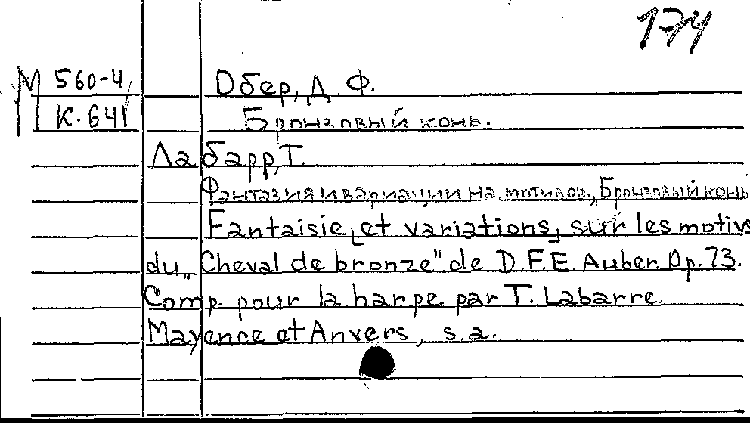 174
М 560-4
К-641
Обер, Д. Ф.
Бронзовый конь.
Лабарр, Т.
Фантазия и вариации на мотивы „Бронзовый конь
Fantaisie et variations sur les motivs
du „Cheval de bronze" de D.F.E. Auber. Op. 73.
Comp. pour la harpe par T. Labarre
Mayence et Anvers, s.a.